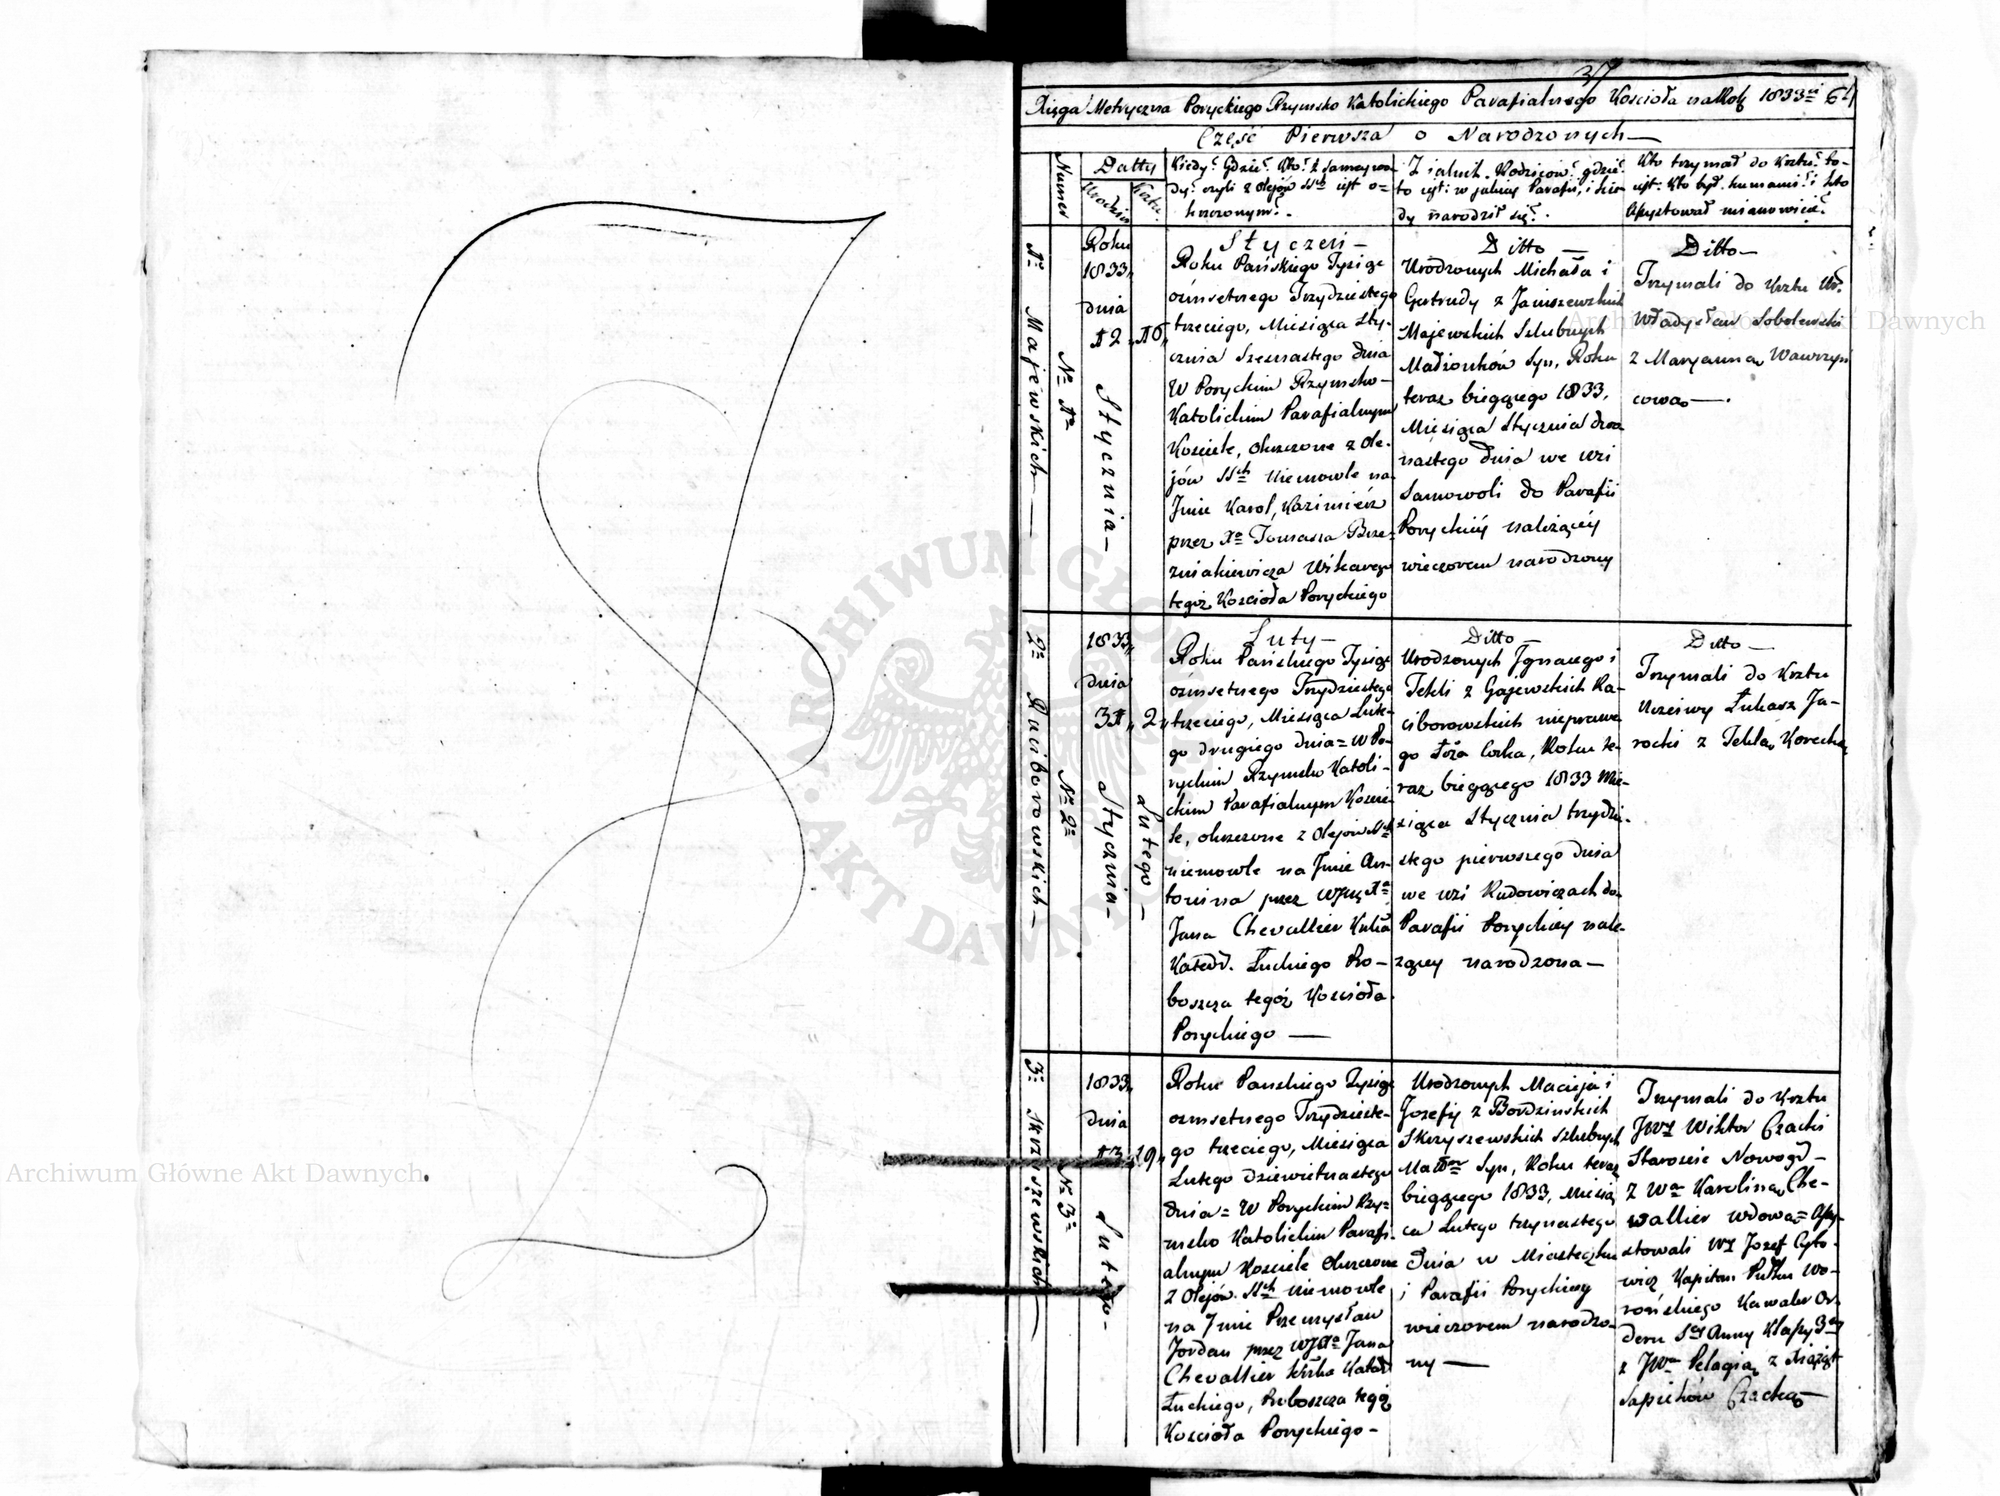 37
Xięga Metryczna Poryckiego Rzymsko Katolickiego Parafialnego Kościoła na Rok 1833
Część Pierwsza o Narodzonych
Numer
Datty
Urodzin
Krztu
Kiedy? Gdzie? Kto? z samey wo-
dy? czyli z Olejów SSch iest o=
krzczonym?
Z iakich Rodziców? gdzie?
to iest: w jakiey Parafii, i kie-
dy narodził się?
Kto trzymał do Krztu? to-
iest: Kto był kumami? i kto
Assystował mianowicie?
1o Majewskich
No 1o
Roku
1833
dnia
12
16
Stycznia
Styczeń
Roku Pańskiego Tysiąc
ośmsetnego Trzydziestego
trzeciego, Miesiąca Sty-
cznia Szesnastego dnia
W Poryckim Rzymsko-
Katolickim Parafialnym
Kościele, okrzczone z Ole-
jów SSch Niemowle na
Jmie Karol, Kazimierz
przez Xa Tomasza Brze-
źniakiewicza Wikarego
tegoż Kościoła Poryckiego
Ditto
Urodzonych Michała i
Gertrudy z Janiszewskich
Majewskich Szlubnych
Małżonków Syn, Roku
teraz biegącego 1833,
Miesiąca Stycznia dwu-
nastego dnia we wsi
Samowoli do Parafii
Poryckiéy należącéy
wieczorem narodzony
Ditto
Trzymali do Krztu Ur.
Władysław Sobolewski
z Maryanną Wawrzyń
cową
2o Raciborowskich
No 2o
1833
dnia
31
2
Stycznia
Lutego
Luty
Roku Pańskiego Tysiąc
ośmsetnego Trzydziestego
trzeciego, Miesiąca Lute-
go drugiego dnia = W Po-
ryckim Rzymsko Katoli-
ckim Parafialnym Koście-
le, okrzczone z Olejów SSch
niemowle na Jmie An-
tonina przez WJXa
Jana Chevallier
Katedr. Łuckiego Pro-
boszcza tegóż Kościoła
Poryckiego
Ditto
Urodzonych Jgnacego i
Tekli z Gajewskich Ra-
ciborowskich nieprawe-
go Łoża Corka, Roku te-
raz biegącego 1833 Mie-
siąca Stycznia trzydzie-
stego pierwszego dnia
we wsi Rudowiczach do
Parafii Poryckiey nale-
żącey narodzona
Ditto
Trzymali do Krztu
Uczciwy Łukasz Ja-
rocki z Teklą Korecką
3o Skrzyszewskich
No 3o
1833
dnia
13
19
Lutego
Roku Pańskiego Tysiąc
ośmsetnego Trzydzieste-
go trzeciego, Miesiąca
Lutego dziewietnastego
dnia = W Poryckim Rzy-
msko Katolickim Parafi-
alnym Kościele Okrzczone
z Olejów SSch niemowle
na Jmie Przemysław
Jordan przez WJXa Jana
Chevallier Katedr
Łuckiego, Proboszcza tegóż
Kościoła Poryckiego
Urodzonych Macieja i
Jozefy z Bordzińskich
Skrzyszewskich szlubnych
Syn, Roku teraz
biegącego 1833, Miesią
ca Lutego trzynastego
Dnia w Miasteczku
i Parafii Poryckiey
wieczorem narodzo-
ny
Trzymali do Krztu
JWJ Wiktor Czacki
Staroście Nowogd-
z Wa Karoliną Che-
wallier wdową = Assy-
stowali WJ Jozef Cyto-
wicz Kapitan Pułku Wo-
rońskiego Kawaler Or-
deru Sej Anny Klassy 3ej
z JWa Pelagią z Xiążąt
Sapiehów Czacką
ARCHIWUM GŁÓWNE AKT DAWNYCH
Archiwum Główne Akt Dawnych
Archiwum Główne Akt Dawnych